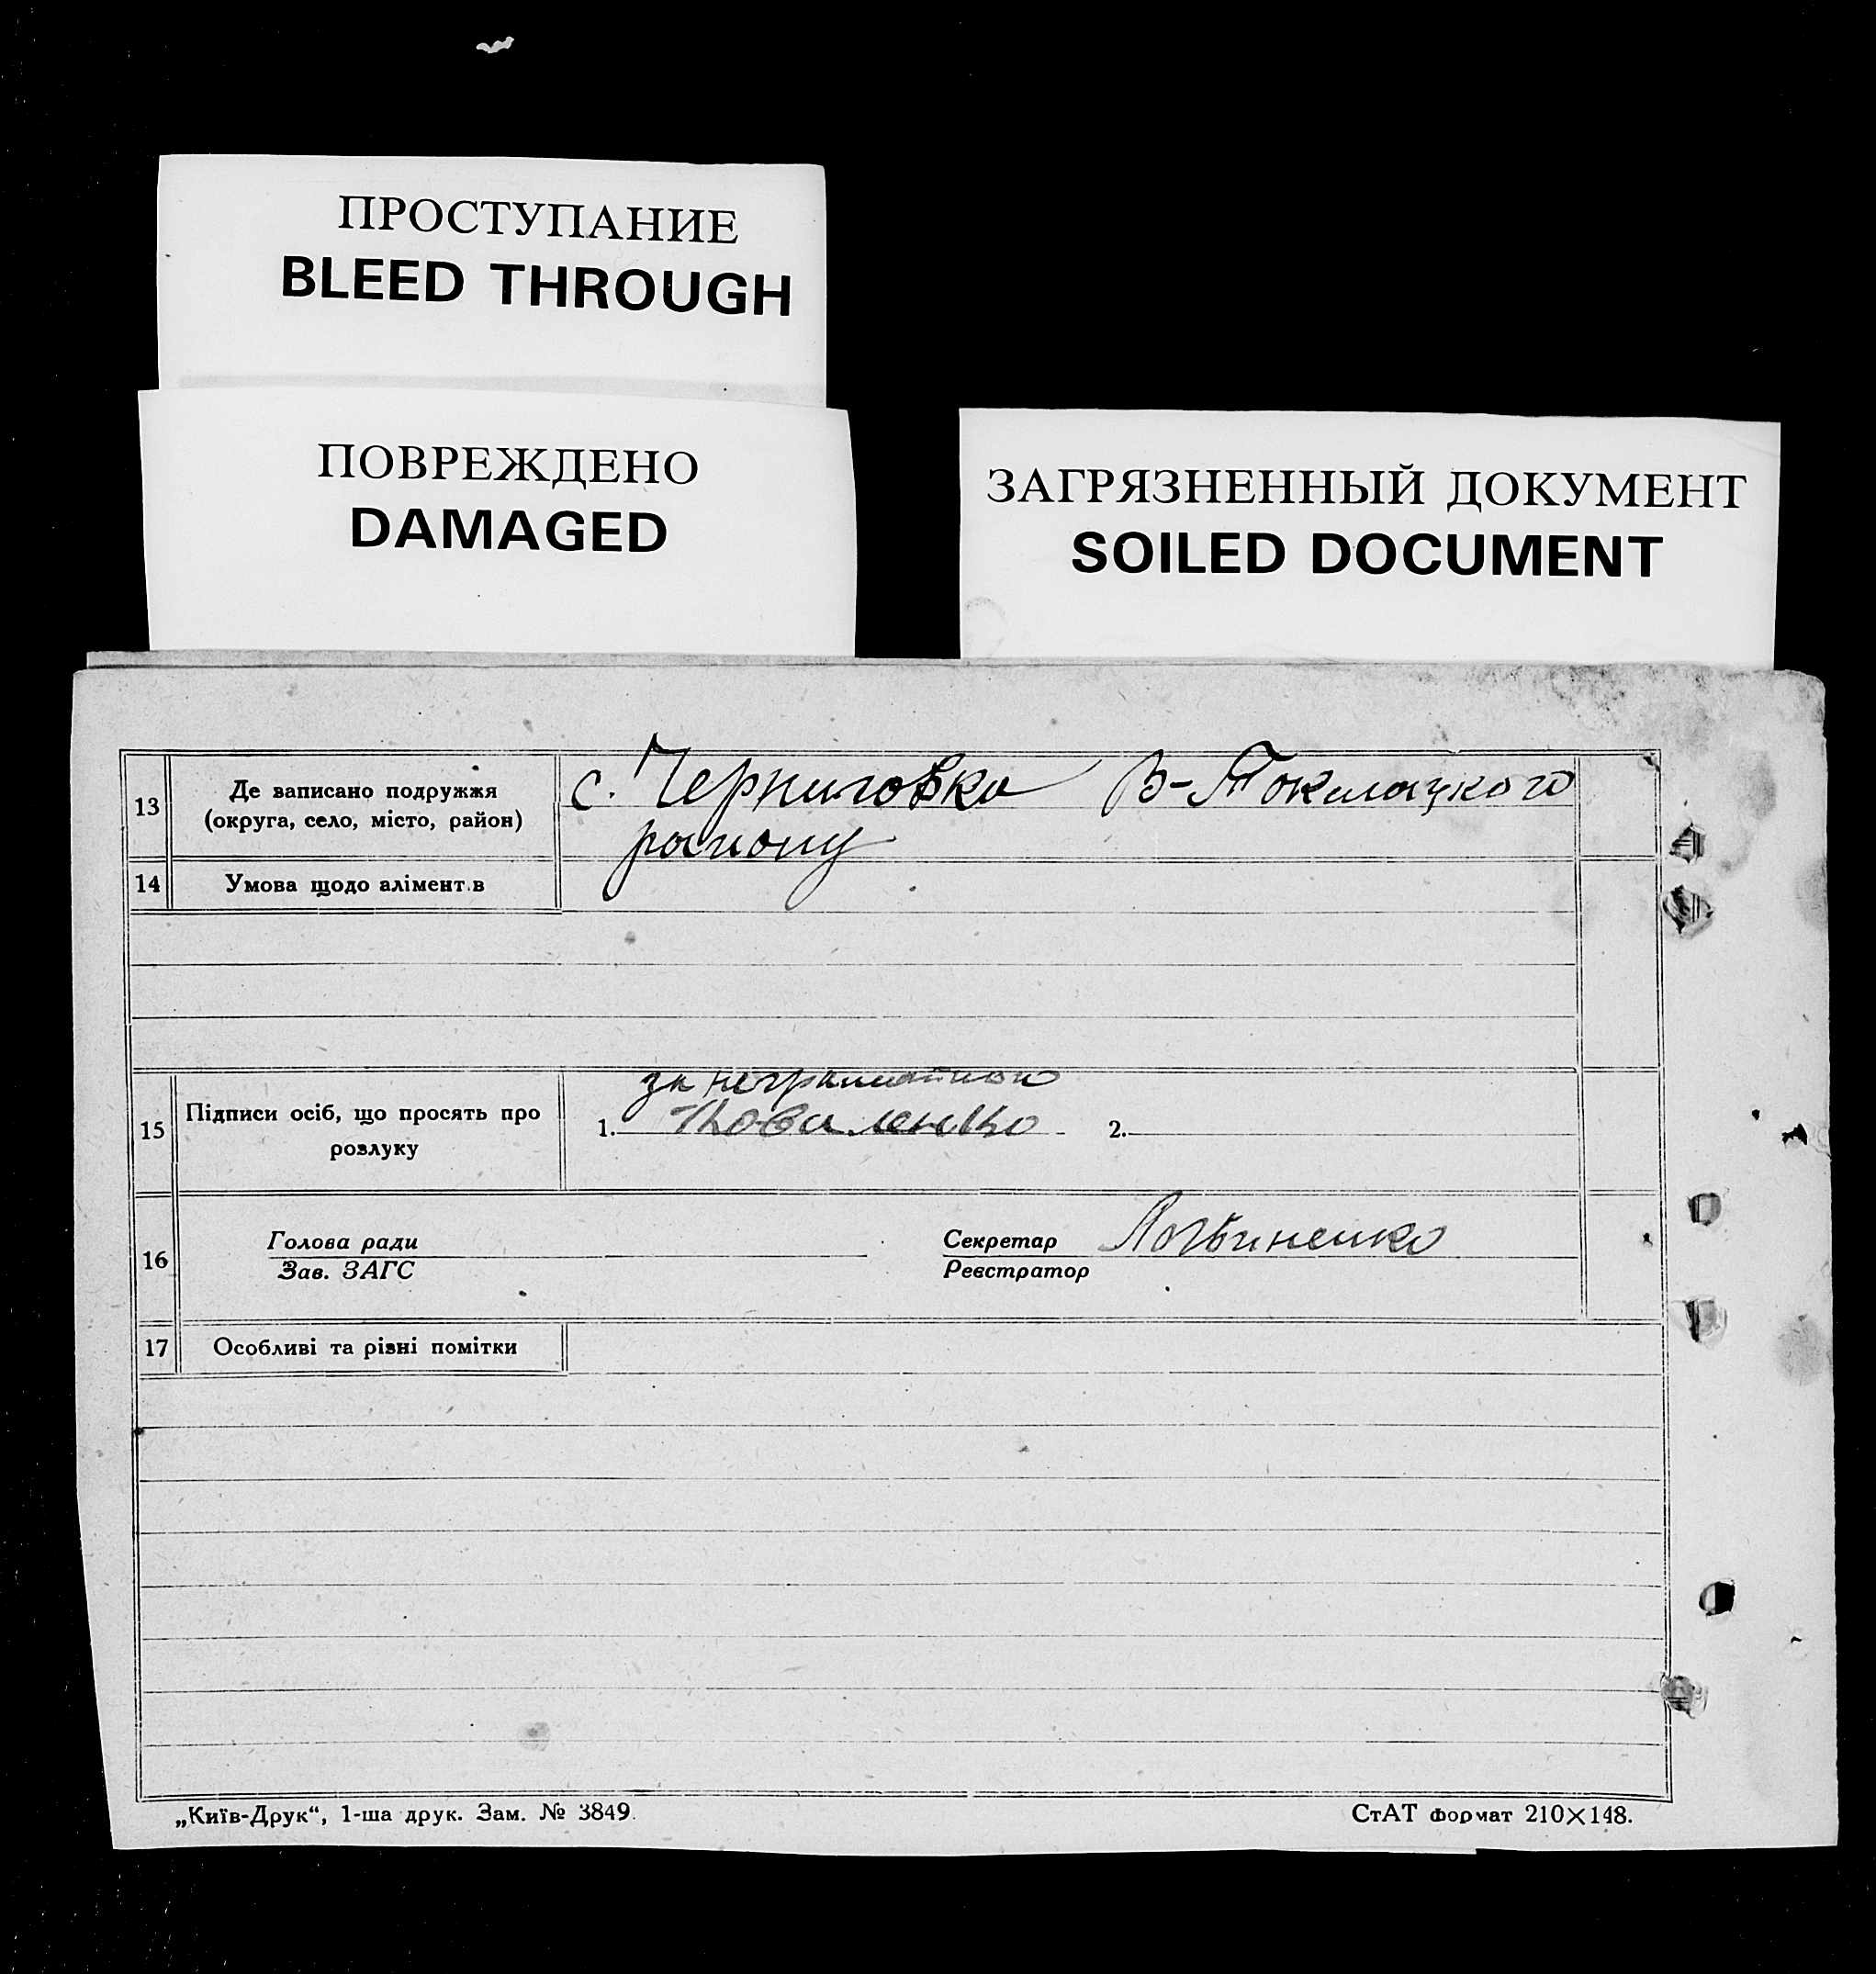 ПРОСТУПАНИЕ
BLEED THROUGH
ПОВРЕЖДЕНО
DAMAGED
ЗАГРЯЗНЕННЫЙ ДОКУМЕНТ
SOILED DOCUMENT
13 Де записано подружжя (округа, село, місто, район) с. Черниговка В-Токмацкого
району
14 Умова щодо алімент.в
15 Підписи осіб, що просять про розлуку
за неграматною
1. Коваленко 2.
16 Голова ради Секретар Логвиненко
Зав. ЗАГС Реєстратор
17 Особливі та різні помітки
„Київ-Друк“, 1-ша друк. Зам. № 3849. СтАТ формат 210×148.